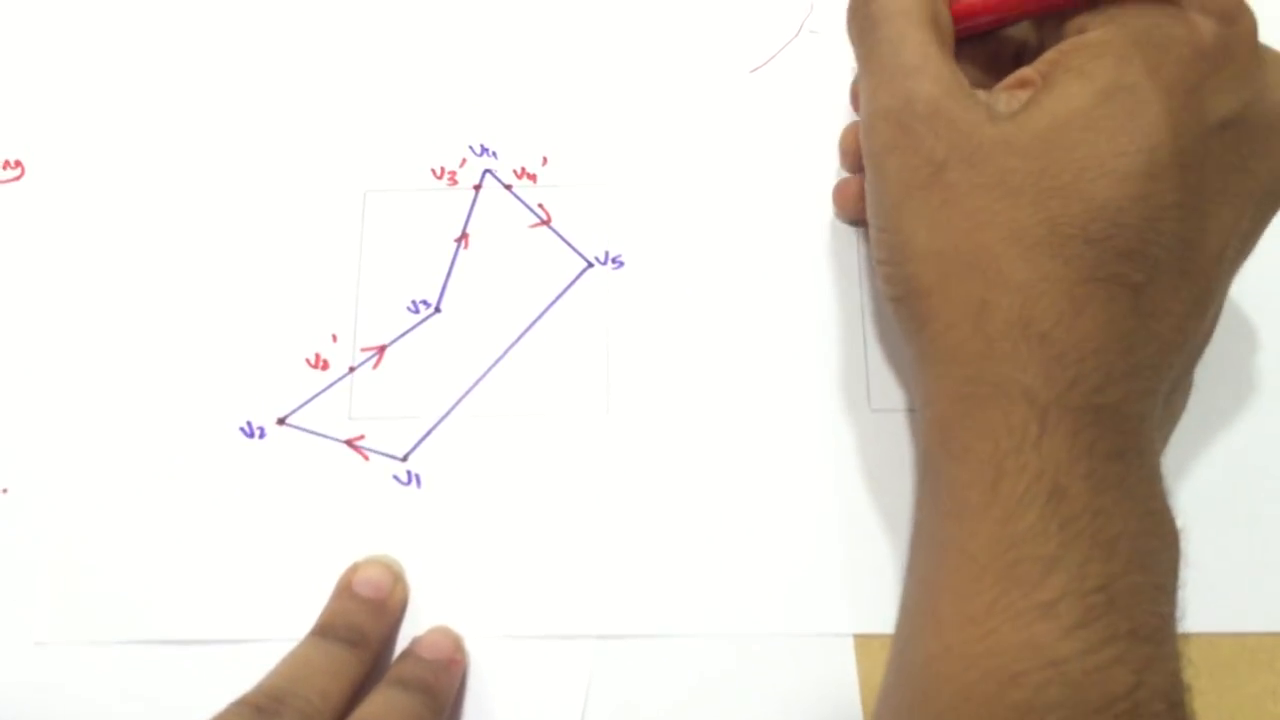 V4
V3' V4'
V5
V3
V2'
V2
V1